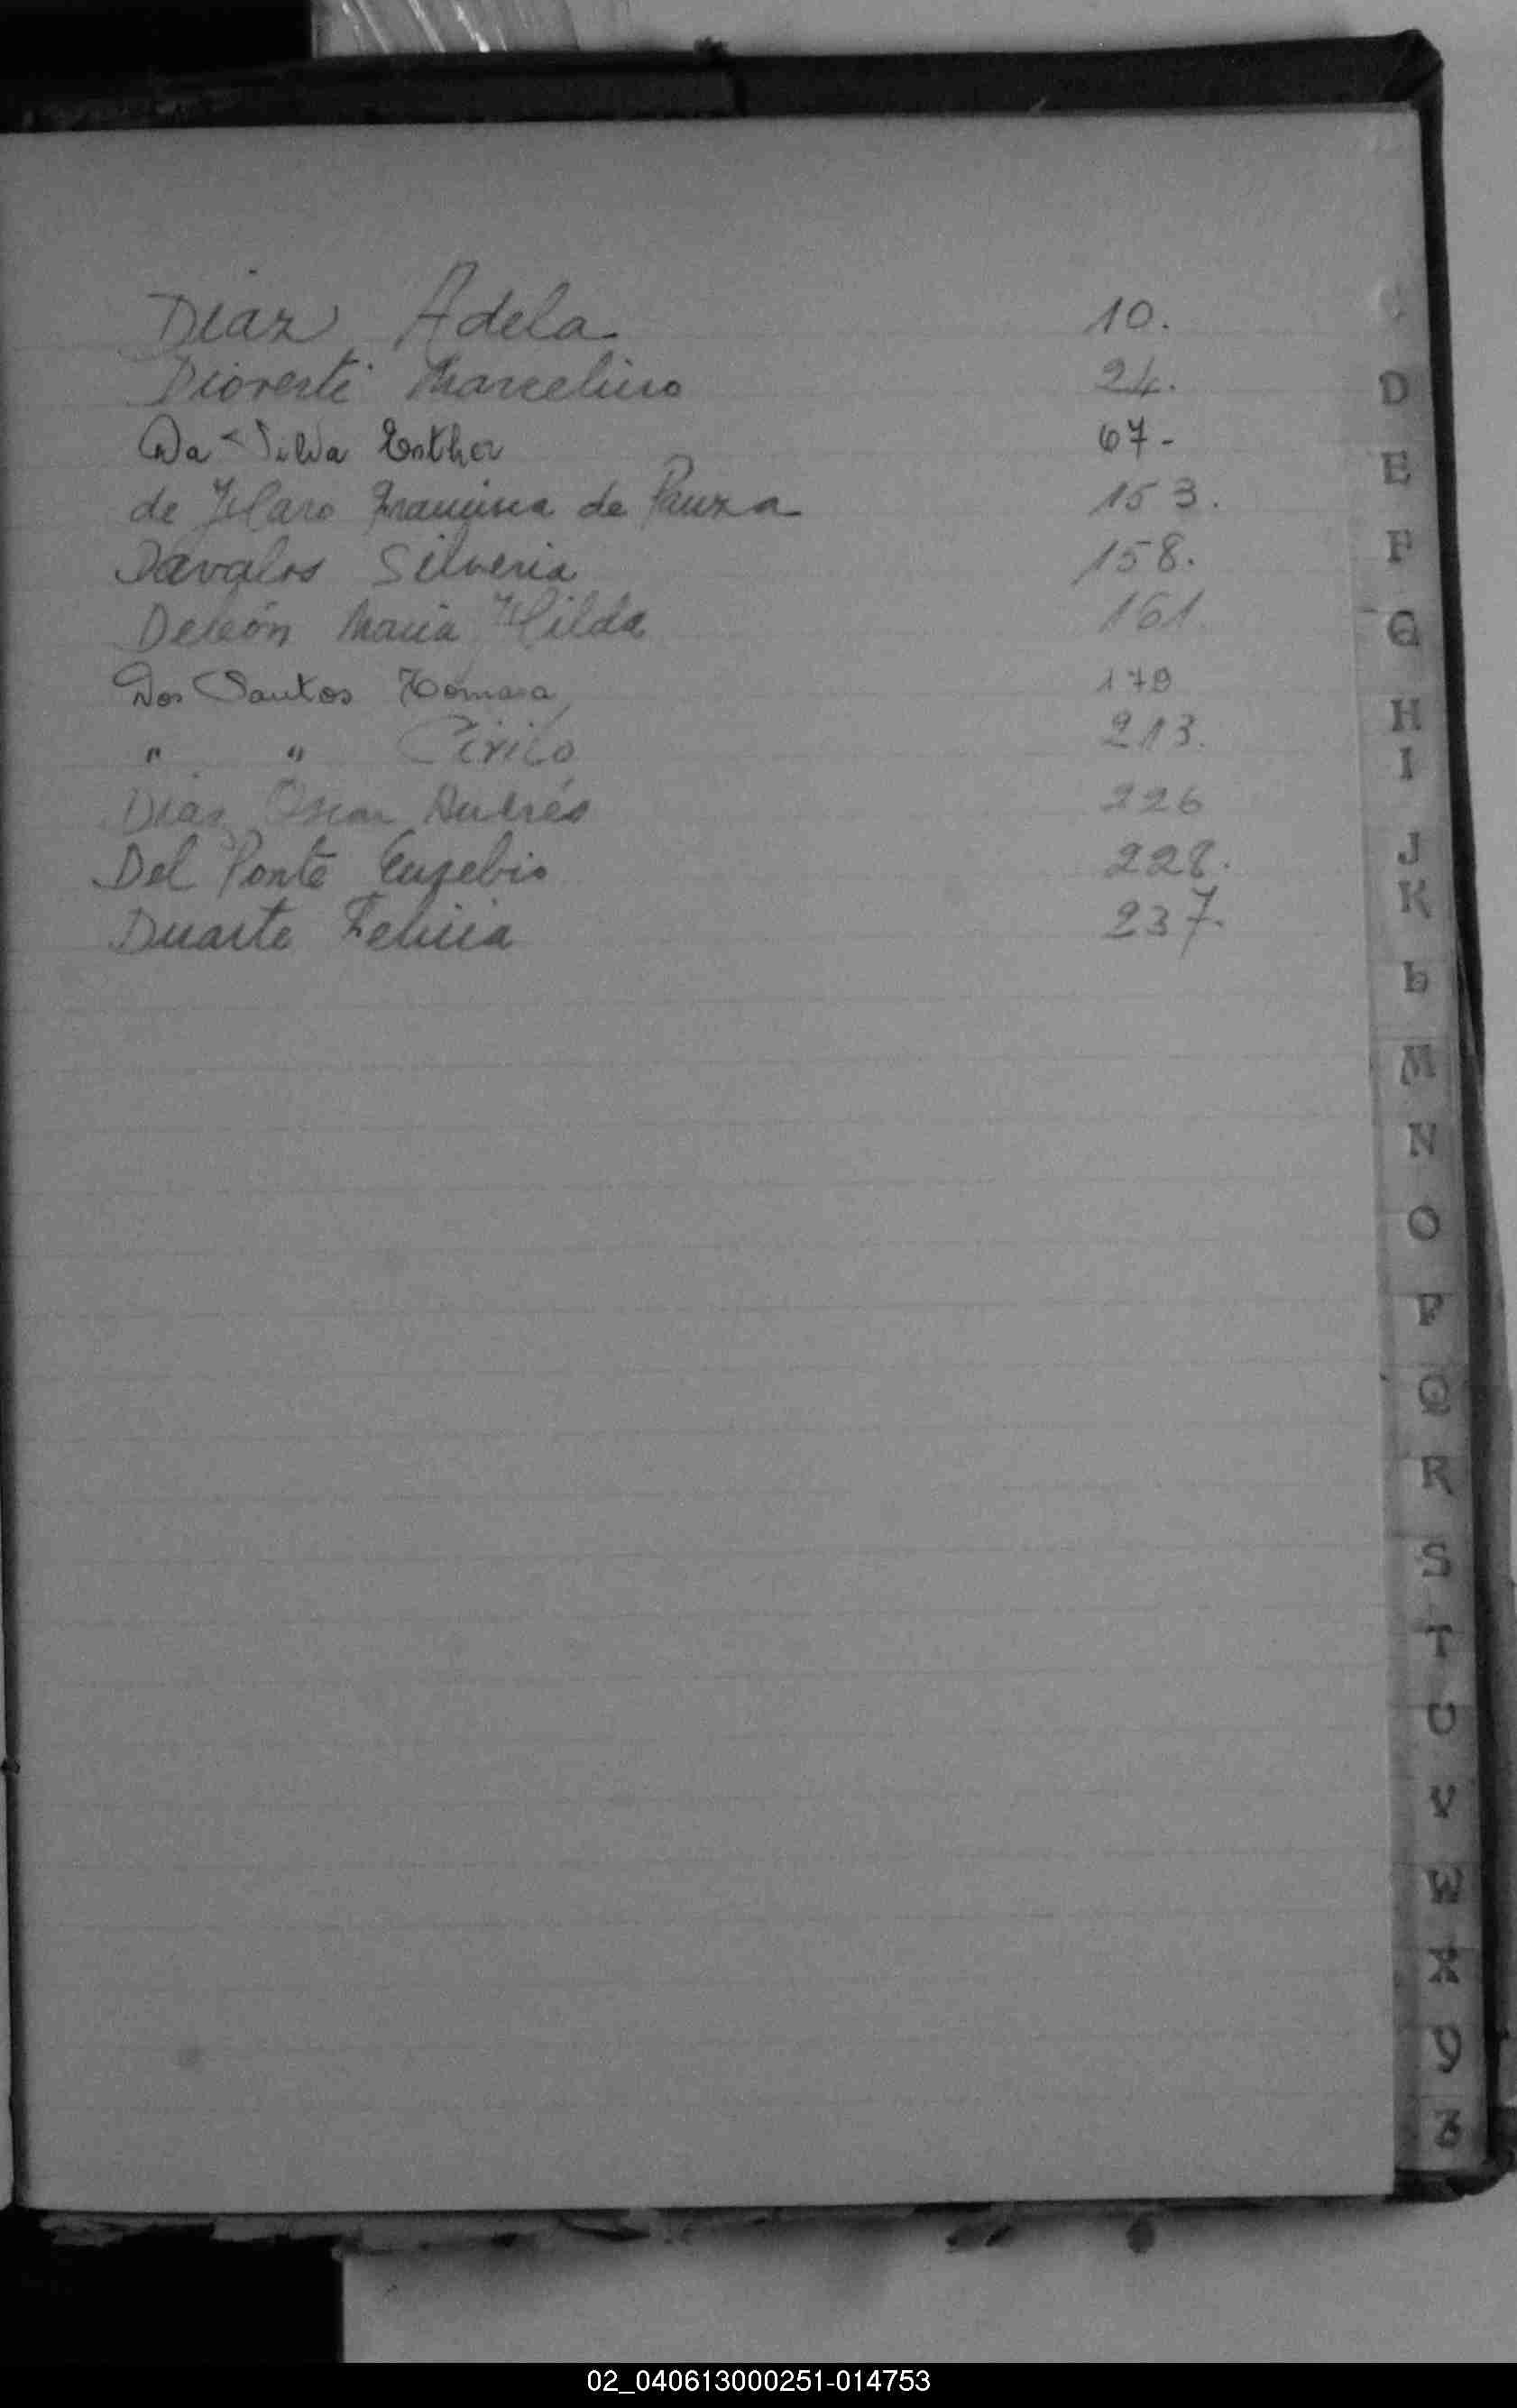 Diaz Adela 10.
Dioverti Marcelino 24.
Da Silva Esther 67-
de Haro Francisca de Pauza 153.
Davalos Silveria 158.
Deleón Maria Hilda 161.
Dos Santos Tomasa 179
" " Cirilo 213.
Dias Oscar Andrés 226
Del Ponte Eusebio 228.
Duarte Felicia 237.
D
E
F
G
H
I
J
K
L
M
N
O
P
Q
R
S
T
U
V
W
X
Y
Z
02_040613000251-014753